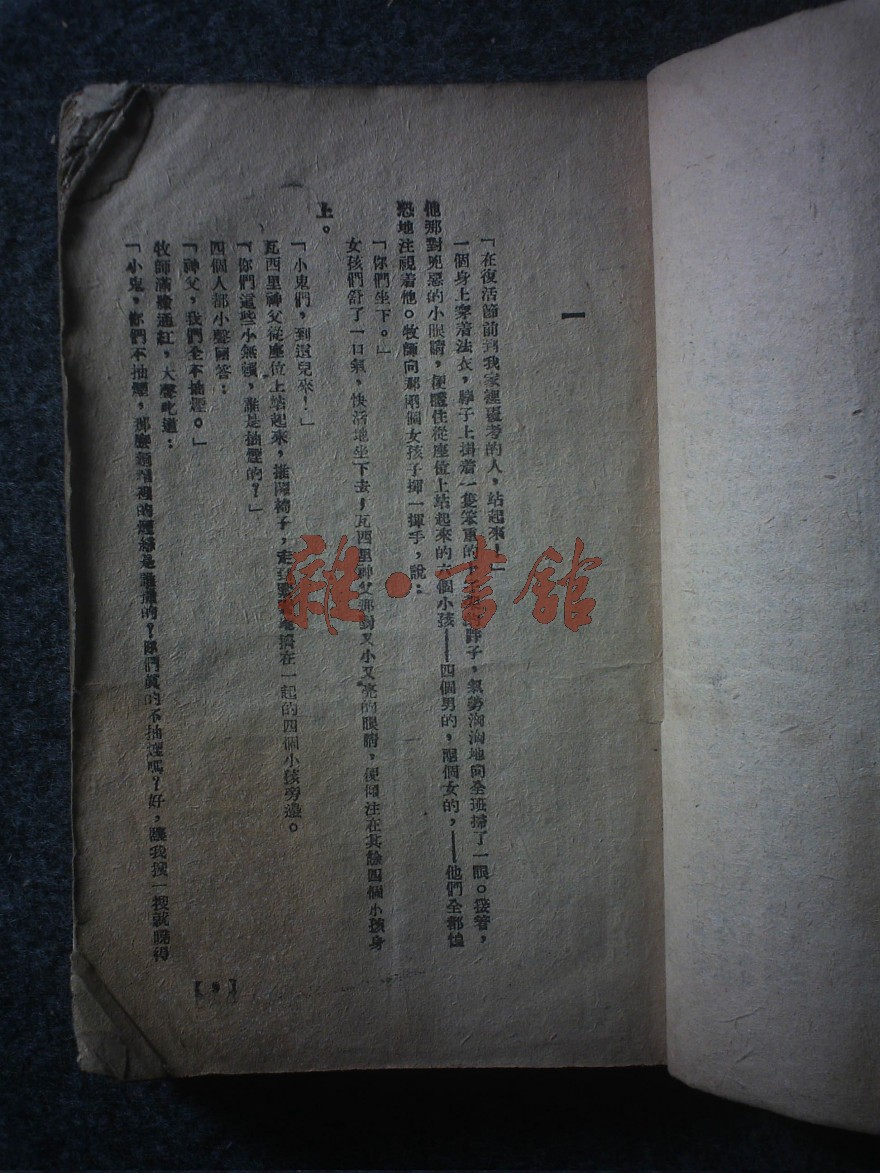 一
「在復活節前到我家裡覆考的人，站起來！」
一個身上穿着法衣，脖子上掛着一隻笨重的十字架的胖子，氣勢洶洶地向全班掃了一眼。接着，
他那對兇惡的小眼睛，便盯住從座位上站起來的六個小孩——四個男的，兩個女的，——他們全都惶
恐地注視着他。牧師向那兩個女孩子揮一揮手，說：
「你們坐下。」
女孩們舒了一口氣，快活地坐下去，瓦西里神父那對又小又亮的眼睛，便傾注在其餘四個小孩身
上。
「小鬼們，到這兒來！」
瓦西里神父從座位上站起來，推開椅子，走到緊緊地擠在一起的四個小孩旁邊。
「你們這些小無賴，誰是抽煙的？」
四個人都小聲回答：
「神父，我們全不抽煙。」
牧師滿臉通紅，大聲叱道：
「小鬼，你們不抽煙，那麼裡的煙絲是誰的？你們真的不抽煙嗎？好，讓我搜一搜就曉得
【9】
雜·書館